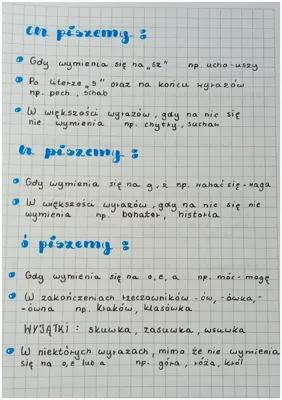 ch piszemy :
Gdy wymienia się na „sz" np. ucho-uszy
Po literze „s" oraz na końcu wyrazów
np. pech, schab
W większości wyrazów, gdy na nic się
nie wymienia np. chytry, suchar
h piszemy :
Gdy wymienia się na g, ż np. wahać się - waga
W większości wyrazów, gdy na nic się nie
wymienia np. bohater, historia
ó piszemy :
Gdy wymienia się na o, e, a np. móc - mogę
W zakończeniach rzeczowników -ów, -ówka, -
-ówna np. Kraków, klasówka
WYJĄTKI : skuwka, zasuwka, wsuwka
W niektórych wyrazach, mimo że nie wymienia
się na o, e lub a np. góra, róża, król